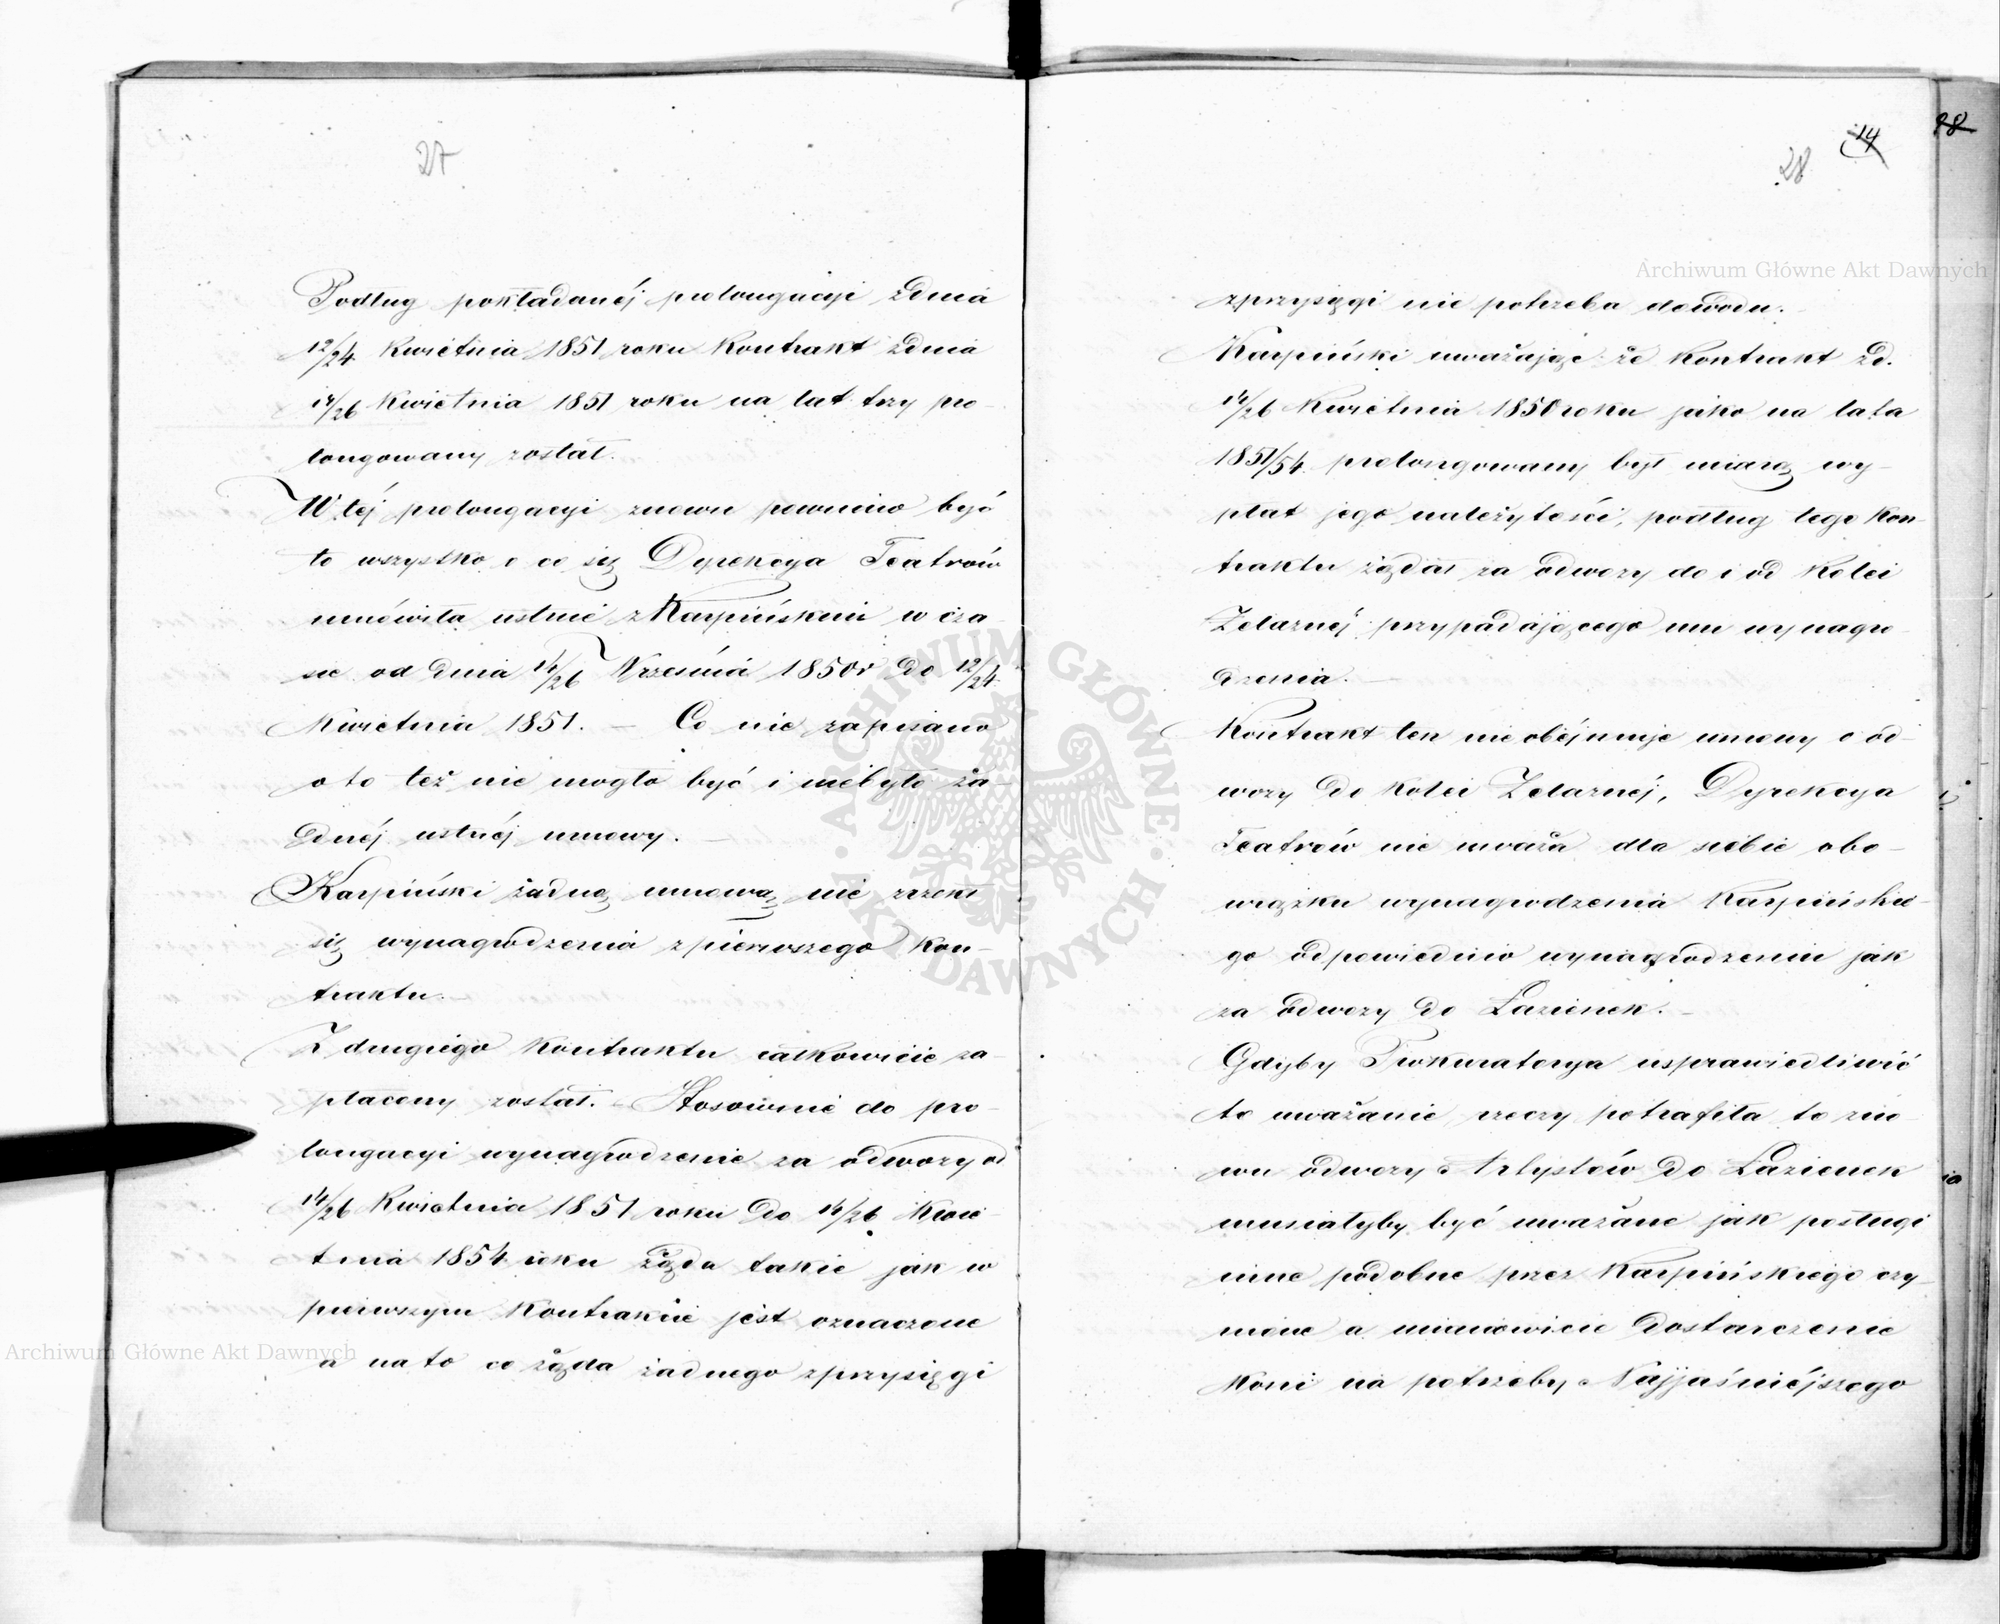 27
Podług pokładanéj prolongacyi zdnia
12/24 Kwietnia 1851 roku Kontrakt zdnia
14/26 Kwietnia 1851 roku na lat trzy pro-
longowany został.
W téj prolongacyi znowu powinno być
to wszystko o co się Dyrekcya Teatrów
umówiła ustnie z Karpińskim w cza-
sie od dnia 14/26 Września 1850r do 12/24
Kwietnia 1851. — Co nie zapisano
o to też nie mogło być i niebyło ża-
dnéj ustnéj umowy. —
Karpiński żadną umową nie zrzekł
się wynagrodzenia z pierwszego Kon-
traktu. —
Z drugiego Kontraktu całkowicie za-
płacony został. — Stosownie do pro-
longacyi wynagrodzenie za odwozy od
14/26 Kwietnia 1851 roku do 14/26 Kwie-
tnia 1854 roku żąda takie jak w
pierwszym Kontrakcie jest oznaczone
a na to co żąda żadnego zprzysięgi
14
28
28
zprzysięgi nie potrzeba dowodu. —
Karpiński uważając że Kontrakt zd.
14/26 Kwietnia 1850 roku jako na lata
1851/54 prolongowany był miarą wy-
płat jego należytości, podług tego Kon-
traktu żądał za odwozy do i od Kolei
Żelaznéj przypadającego mu wynagro-
dzenia. —
Kontrakt ten nie obéjmuje umowy o od-
wozy do Kolei Żelaznéj, Dyrekcya
Teatrów nie uważa dla siebie obo-
wiązku wynagrodzenia Karpińskie-
go odpowiednio wynagrodzeniu jak
za odwozy do Łazienek. —
Gdyby Prokuratorya usprawiedliwić
to uważanie rzeczy potrafiła to zno-
wu odwozy Artystów do Łazienek
musiałyby być uważane jak posługi
inne podobne przez Karpińskiego czy-
nione a mianowicie dostarczenie
Koni na potrzeby Najjaśniéjszego
Archiwum Główne Akt Dawnych
Archiwum Główne Akt Dawnych
ARCHIWUM GŁÓWNE · AKT DAWNYCH ·